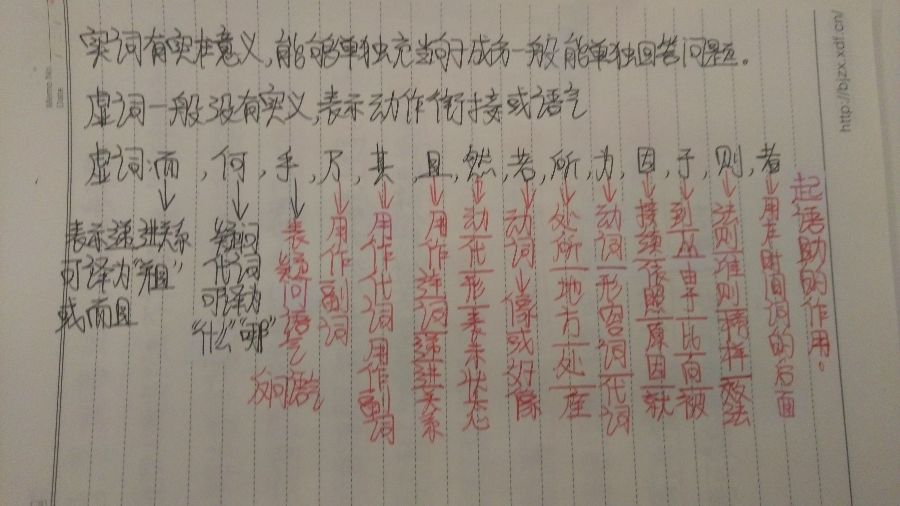 实词有实在意义,能够单独充当句子成份一般能单独回答问题。
虚词一般没有实义,表示动作衔接或语气
虚词:而,何,乎,乃,其,且,然,若,所,为,因,于,则,者
表示递进关系
可译为"并且"
或而且
疑问
代词
可译为
"什么""哪"
表疑问语气
反问语气
用作副词
用作代词用作副词
用作连词递进关系
动代形表示状态
动词→像或好像
处所地方处座
动词形容词代词
接续依照原因就
到从由于比向被
法则准则榜样效法
用在时间词的后面
起语助的作用。
Memo No.
Date
http://bjzx.xdf.cn/